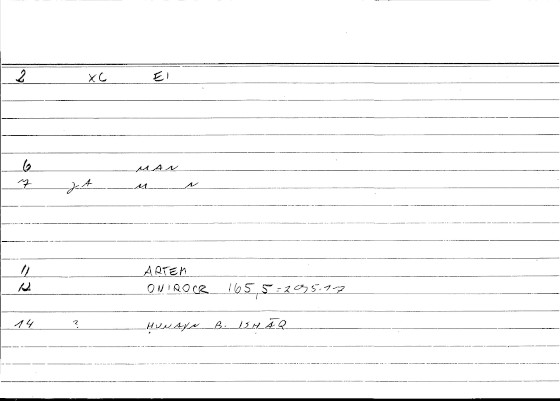 2 XC EI
6 MAN
7 M N
11 ARTEM
12 ONIROCR 165,5 = 295.17
14 ? ḤUNAYN B. ISḤĀQ